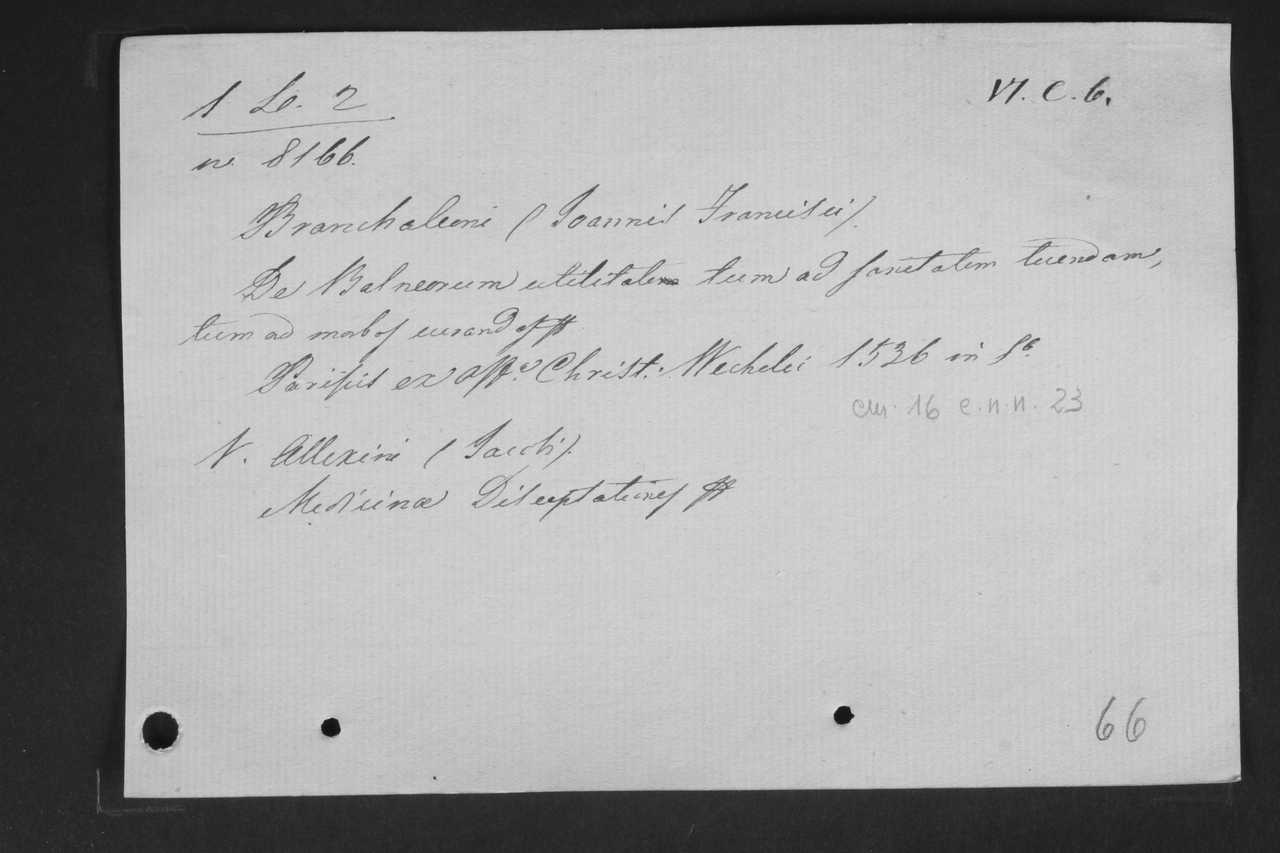 1 Lo. 2
VI. C. 6.
nr. 8166.
Branchaleoni (Joannis Francisci).
De Balneorum utilitate tum ad sanitatem tuendam,
tum ad morbos curandos
Parisiis ex Offa. Christ. Wecheli 1536 in 8o.
16 c.n.n. 23
V. Allexini (Jacobi).
Medicinæ Disceptationes
66